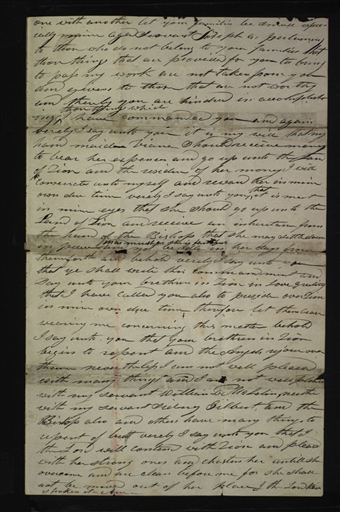 one with another let your families be small
mine aged servant Joseph as pertaining
to them who do not belong to your families that
those things that are provided for you to bring
to pass my work are not taken from you
and given to those that are not worthy
and thereby you are hindered in accomplishing
those things which
I have commanded you and again
verily I say unto you it is my will that my
hand maid Vienna should receive money
to bear her expenses and go up unto the Land
of Zion and the residue of her money I will
consecrate unto myself and reward her in mine
own due time verily I say unto you that it is meet
in mine eyes that she should go up unto the
Land of Zion and receive an inheritance from
the hand of the Bishop that she may settle down
in peace
her days from
thenceforth and behold verily I say unto you
that ye shall write this commandment and
say unto your brethren in Zion in love greeting
that I have called you also to preside over Zion
in mine own due time therefore let them cease
wearying me concerning this matter behold
I say unto you that your brethren in Zion
begin to repent and the angels rejoice over
them nevertheless I am not well pleased
with many things and I am not well pleased
with my servant William E. McLelin neither
with my servant Sidney Gilbert and the
Bishop also and others have many things to
repent of but verely I say unto you that I
the Lord will contend with Zion and plead
with her strong ones and chasten her untill she
overcome and are clean before me for she shall
not be moved out of her place I the Lord have
spoken it Amen